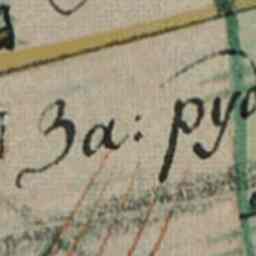 За: ру